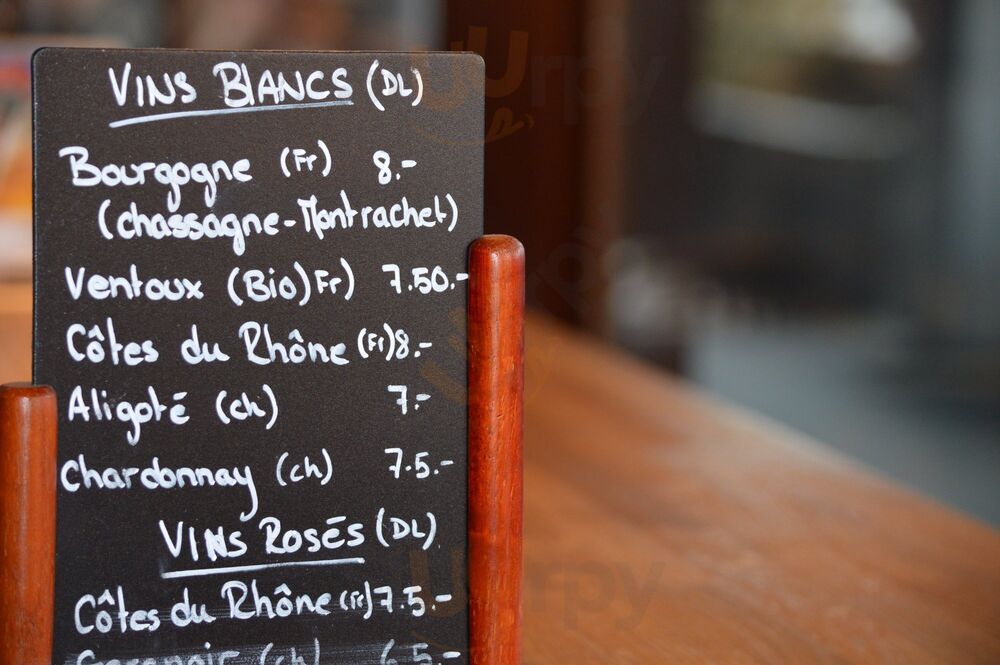 VINS BLANCS (DL)
Bourgogne (Fr) 8.-
(chassagne-Montrachet)
Ventoux (Bio) Fr) 7.50.-
Côtes du Rhône (Fr) 8.-
Aligoté (ch) 7.-
Chardonnay (ch) 7.5.-
VINS ROSÉS (DL)
Côtes du Rhône (Fr) 7.5.-
(ch) 6.5.-